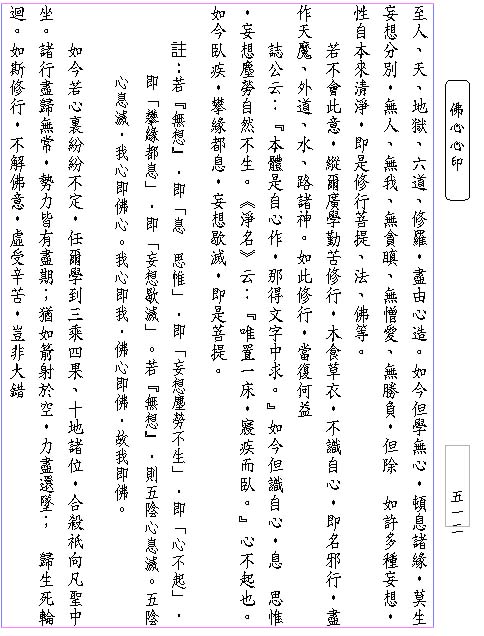 佛心心印
至人、天、地獄、六道、修羅，盡由心造。如今但學無心，頓息諸緣，莫生
妄想分別，無人、無我、無貪瞋、無憎愛、無勝負，但除　如許多種妄想，
性自本來清淨，即是修行菩提、法、佛等。
若不會此意，縱爾廣學勤苦修行，木食草衣，不識自心，即名邪行，盡
作天魔、外道、水、路諸神。如此修行，當復何益
誌公云：『本體是自心作，那得文字中求。』如今但識自心，息　思惟
，妄想塵勞自然不生。《淨名》云：『唯置一床，寢疾而臥。』心不起也。
如今臥疾，攀緣都息，妄想歇滅，即是菩提。
註：若『無想』，即「息　思惟」，即「妄想塵勞不生」，即「心不起」，
即「攀緣都息」，即「妄想歇滅」。若『無想』，則五陰心息滅。五陰
心息滅，我心即佛心。我心即我，佛心即佛，故我即佛。
如今若心裏紛紛不定，任爾學到三乘四果、十地諸位，合殺祇向凡聖中
坐。諸行盡歸無常，勢力皆有盡期；猶如箭射於空，力盡還墜；　歸生死輪
迴。如斯修行，不解佛意，虛受辛苦，豈非大錯
五一二